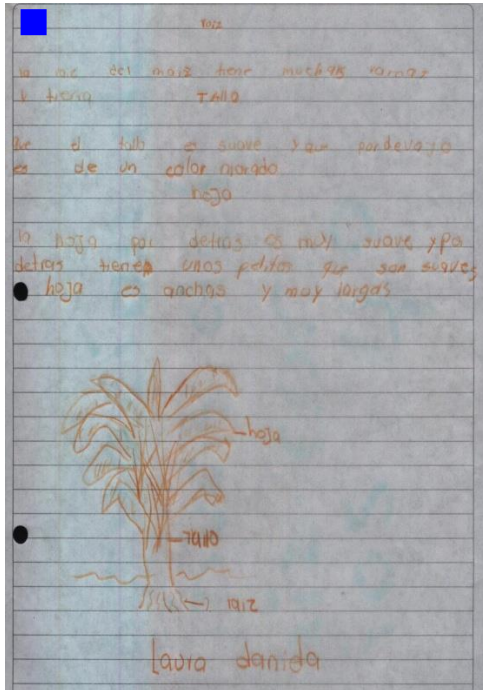 raiz
la raiz del mais tiene muchas ramas
y tierra
TAllO
Que el tallo es suave y que pordevajo
es de un color morado
hoja
la hoja por detras es muy suave y po
detras tiene unos pelitos que son suaves
hoja es anchas y muy largas
hoja
TAllO
raiz
Laura daniela